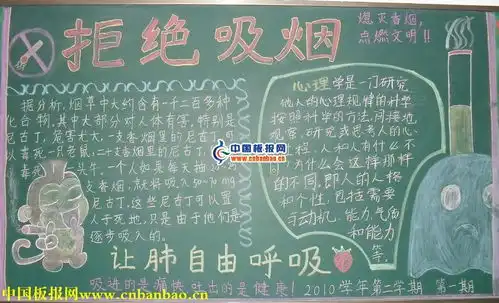 拒绝吸烟
熄灭香烟,
点燃文明!!
据分析,烟草中大约含有一千二百多种
化合物,其中大部分对人体有害,特别是
尼古丁,危害尤大,一支香烟里的尼古丁可
以毒死一只老鼠,二十支香烟里的尼古丁
毒死一头牛,一个人如果每天抽
支香烟,就将吸入50~70mg
尼古丁,这些尼古丁可以置
人于死地,只是由于他们是
逐步吸入的。
心理学是一门研究
他人的心理规律的科学
按照科学的方法,间接地
观察,研究或思考人的心
程,人和人有什么不
为什么会这样那样
的不同,即人的人格
和个性,包括需要
与动机,能力,气质
和能力
等。
中国板报网
www.cnbanbao.cn
让肺自由呼吸
吸进的是痛快 吐出的是健康!
2010学年第二学期 第一期
中国板报网www.cnbanbao.cn